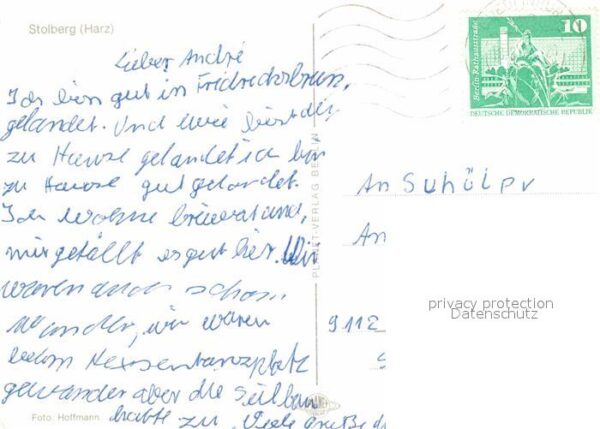 Stolberg (Harz)
Lieber André
Ich bin gut in
gelandet. Und wie bist du
zu Hause gelandet ich bin
zu Hause gut gelandet.
Ich wohne
mir gefällt es gut hier. Wir
waren auch schon
wir waren
beim Hexentanzplatz
gewander aber die Seilban
hatte zu Viele Grüße
Foto: Hoffmann
PLANET-VERLAG BERLIN
10
Berlin-Rathausstraße
DEUTSCHE DEMOKRATISCHE REPUBLIK
An Schüler
An
9112
privacy protection
Datenschutz